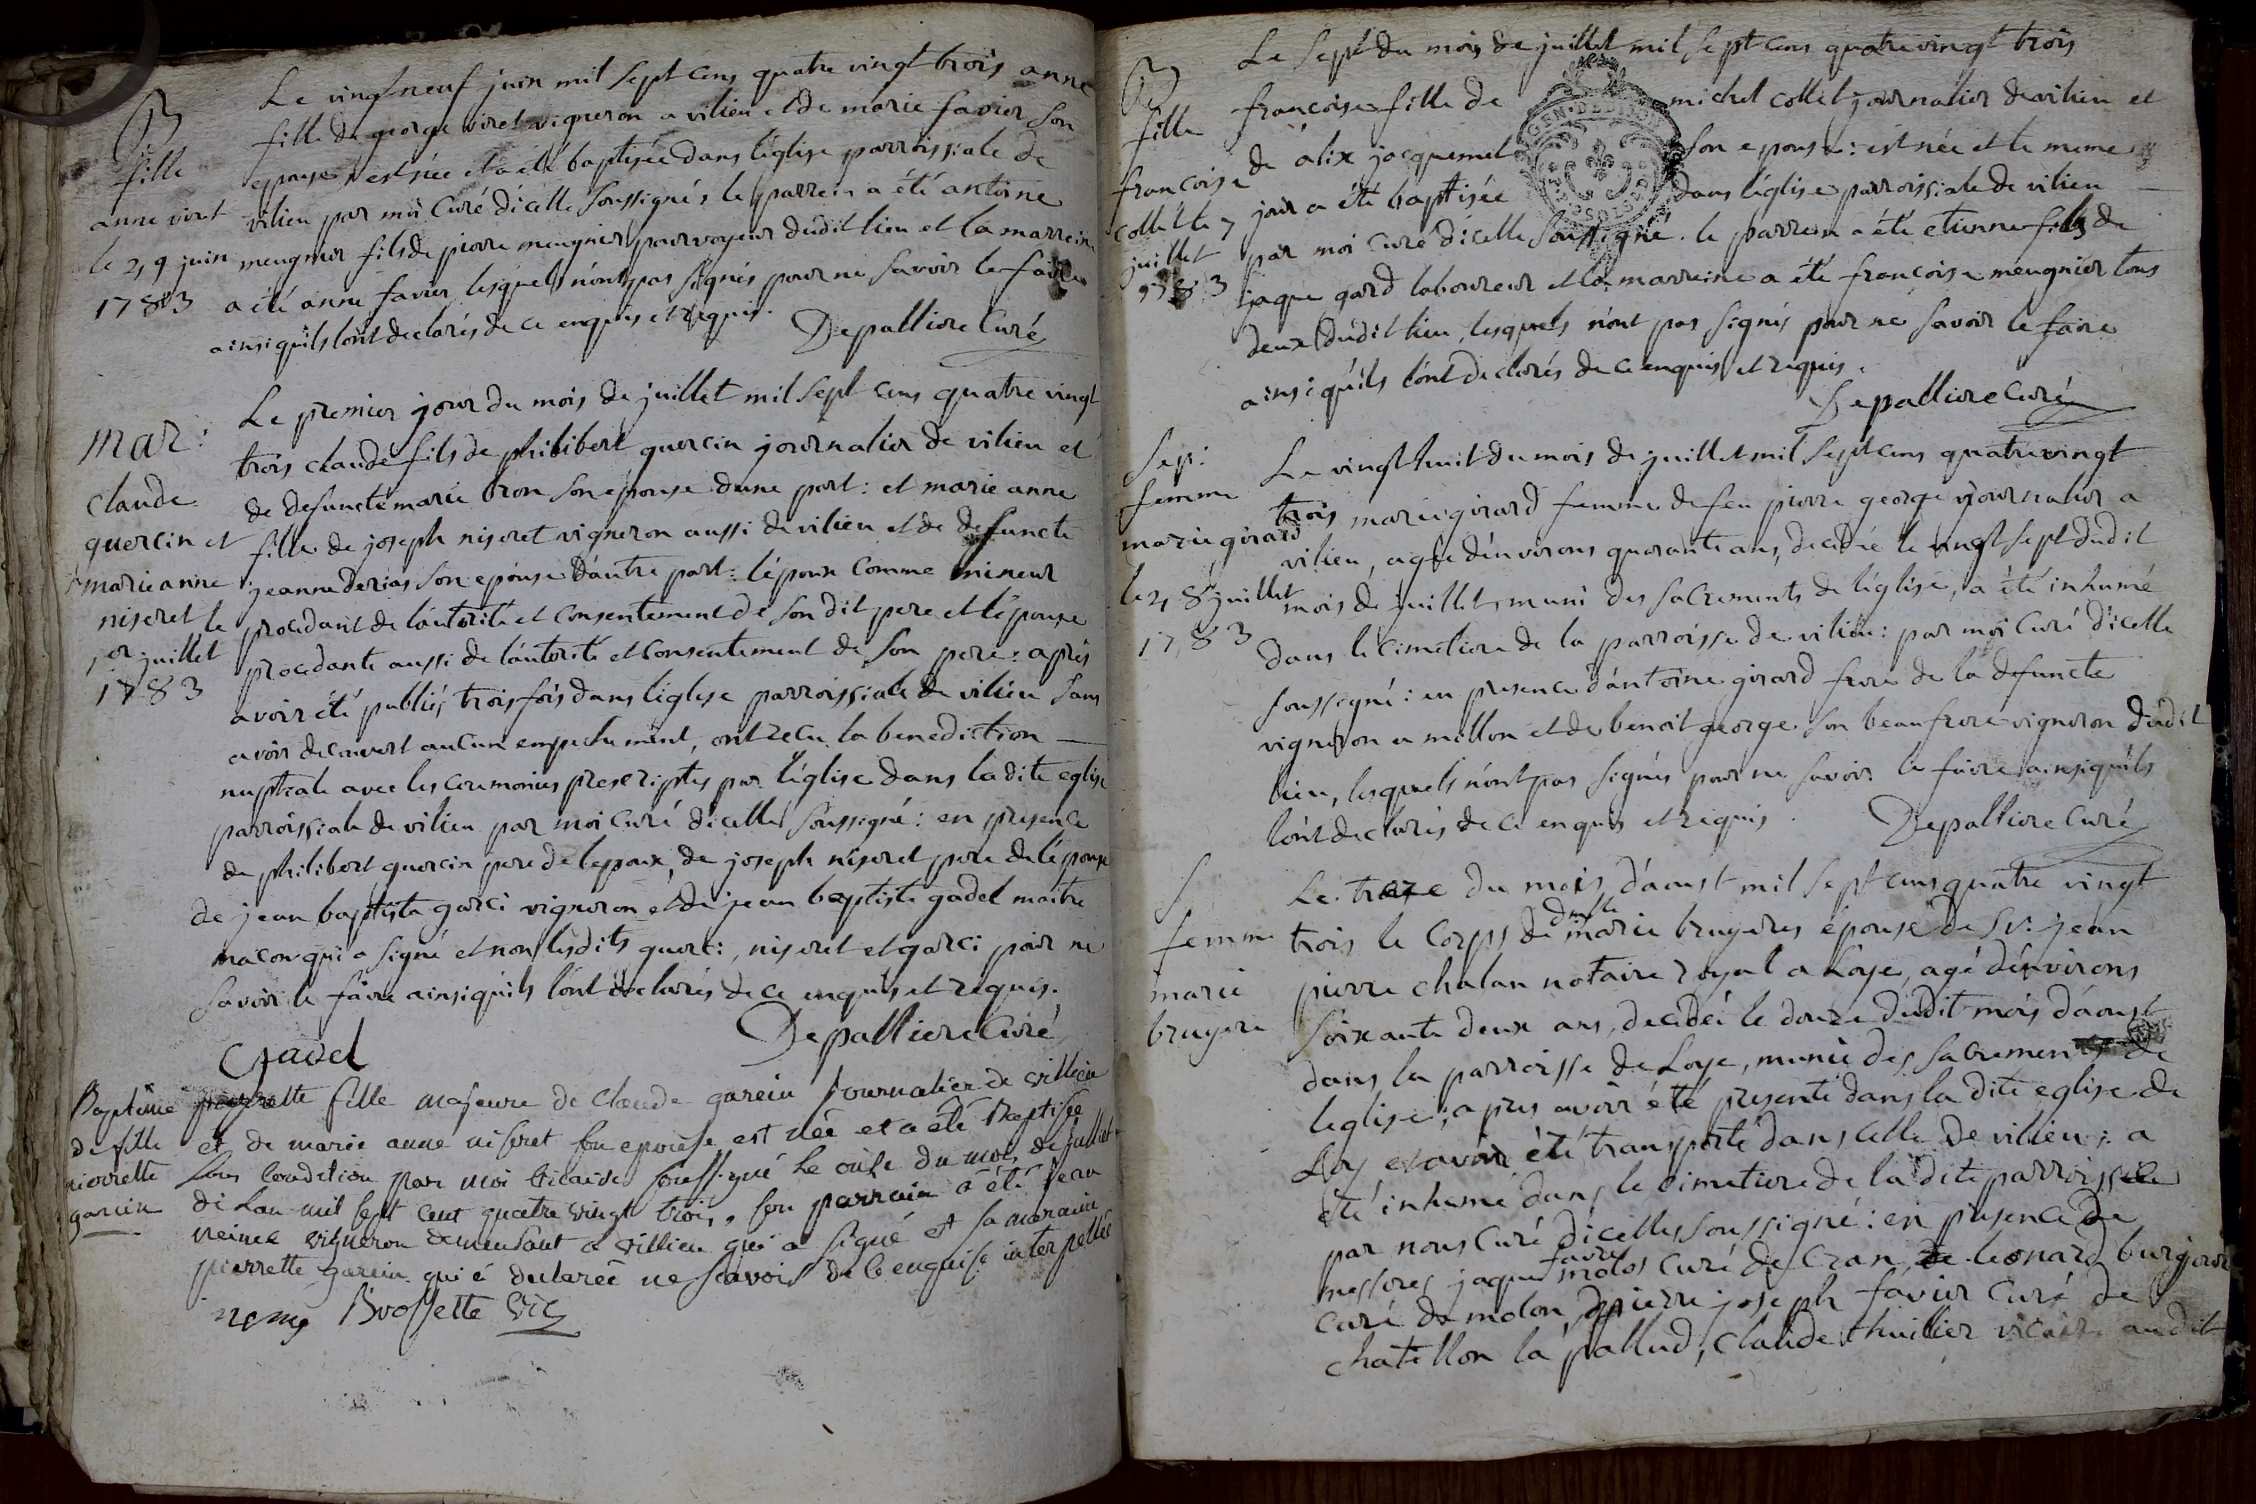 B
fille
anne viret
le 2,9 juin
1783
Le vingt neuf juin mil sept cens quatre vingt trois anne
fille de george viret vigneron a vilieu et de marie favier son
epouse est née et a été baptisée dans léglise parroissiale de
vilieu par moi Curé dicelle soussigné, le parrein a été antoine
meugnier fils de pierre meugnier pourvoyeur dudit lieu et la marreine
a été anne favier lesquels n'ont pas signés pour ne savoir le faire
ainsi quils l'ont declarés de ce enquis et requis.
Depalliere Curé
mar:
claude
guercin et
marie anne
niseret le
1er juillet
1783
Le premier jour du mois de juillet mil sept cens quatre vingt
trois claude fils de philibert guercin journalier de vilieu et
de defuncte marie bron son épouse dune part: et marie anne
fille de joseph niseret vigneron aussi de vilieu et de defuncte
jeanne derias son epouse dautre part: l'époux comme mineur
procedant de l'autorité et consentement de son dit pere et l'épouse
procedante aussi de l'autorité et consentement de son pere: après
avoir été publiés trois fois dans l'église parroissiale de vilieu sans
avoir decouvert aucun empechement, ont recu la benediction
nuptiale avec les ceremonies prescriptes par l'église dans la dite eglise
parroissiale de vilieu par moi Curé dicelle soussigné: en presence
de philibert guercin pere de lepoux, de joseph niseret pere de l'épouse
de jean baptiste garci vigneron et de jean baptiste gadel maitre
macon qui a signé et non lesdits guerci, niseret et garci pour ne
savoir le faire ainsi quils l'ont declarés de ce enquis et requis.
Gadel
Depalliere Curé
Baptême
de fille
pierrette
garcin
pierrette fille majeure de Claude garcin Journalier de villieu
et de marie anne niseret son epouse est née et a été Baptisée
sous Condition par moi vicaire soussigné le onse du mois de Juillet
de Lan mil sept cent quatre vingt trois, son parrain a été Jean
vigneron demeurant a villieu qui a signé et sa maraine
pierrette garcin qui a declarée ne savoir de ce enquise interpellée
Brossette vic
B
fille
francoise
collet le 7
juillet
1783
GEN. DE DIJON
Le sept du mois de juillet mil sept cens quatre vingt trois
francoise fille de michel collet journalier de vilieu et
de alix jacquemet son epouse: est née et le meme
jour a été baptisée dans l'église parroissiale de vilieu
par moi curé dicelle soussigné. le parrein a été etienne fils de
jaque gard laboureur et la marreine a été francoise meugnier tous
deux dudit lieu, lesquels n'ont pas signés pour ne savoir le faire
ainsi quils l'ont declarés de ce enquis et requis.
Depalliere Curé
Sep:
femme
marie girard
le 2,8 juillet
1783
Le vingt huit du mois de juillet mil sept cens quatre vingt
trois marie girard femme de feu pierre george journalier a
vilieu, agée d'environs quarante ans, decedée le vingt sept dudit
mois de juillet, muni des sacrements de l'église, a été inhumé
dans le cimetiere de la parroisse de vilieu: par moi Curé dicelle
soussigné: en presence d'antoine girard frere de la defuncte
vigneron a mollon et de benoit george son beau frere vigneron dudit
lieu, lesquels n'ont pas signés pour ne savoir le faire ainsi quils
l'ont declarés de ce enquis et requis.
Depalliere Curé
S
femme
marie
bruyere
Le treze du mois d'aoust mil sept cens quatre vingt
trois le corps de dmlle marie bruyeres épouse de Sr. jean
pierre chalan notaire royal a Loye, agé d'environs
soixante deux ans, decedée le douze dudit mois d'aoust
dans la parroisse de Loye, munie des sacrements de
leglise, apres avoir été presenté dans la dite eglise de
Loy et avoir été transporté dans celle de vilieu: a
été inhumé dans le cimetiere de la dite parroisse
par nous Curé dicelle soussigné: en presence de
messires jaque favre molos curé de Cran, de leonard
curé de molon, pierre joseph favier Curé de
chatillon la pallud, claude thuillier vicaire audit